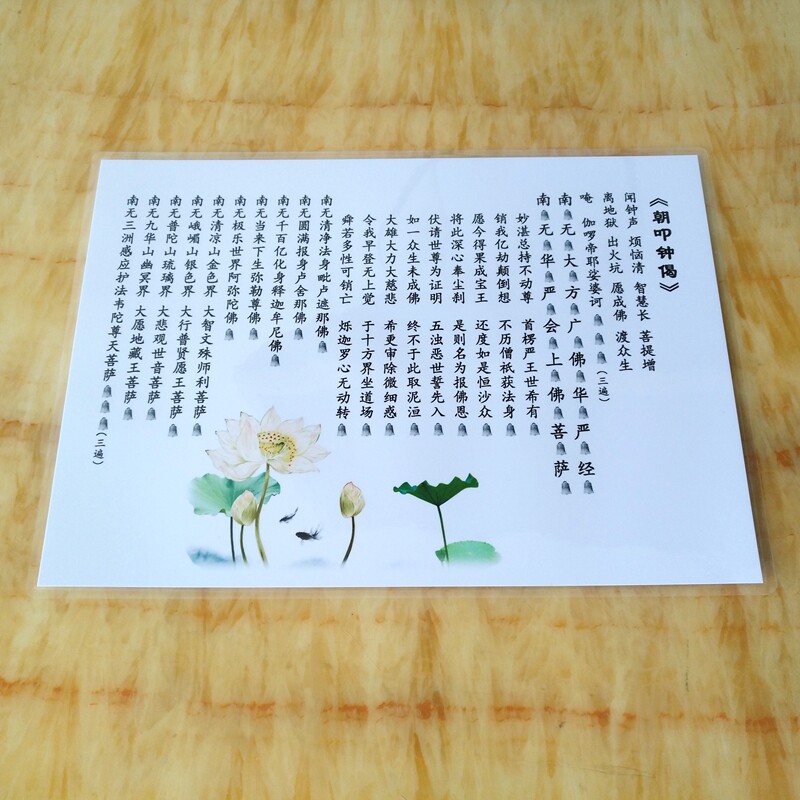 《朝叩钟偈》
闻钟声 烦恼清 智慧长 菩提增
离地狱 出火坑 愿成佛 渡众生
唵 伽啰帝耶娑婆诃(三遍)
南无大方广佛华严经
南无华严会上佛菩萨
妙湛总持不动尊 首楞严王世希有
销我亿劫颠倒想 不历僧祇获法身
愿今得果成宝王 还度如是恒沙众
将此深心奉尘刹 是则名为报佛恩
伏请世尊为证明 五浊恶世誓先入
如一众生未成佛 终不于此取泥洹
大雄大力大慈悲 希更审除微细惑
令我早登无上觉 于十方界坐道场
舜若多性可销亡 烁迦罗心无动转
南无清净法身毗卢遮那佛
南无圆满报身卢舍那佛
南无千百亿化身释迦牟尼佛
南无当来下生弥勒尊佛
南无极乐世界阿弥陀佛
南无清凉山金色界 大智文殊师利菩萨
南无峨嵋山银色界 大行普贤愿王菩萨
南无普陀山琉璃界 大悲观世音菩萨
南无九华山幽冥界 大愿地藏王菩萨
南无三洲感应护法韦陀尊天菩萨(三遍)